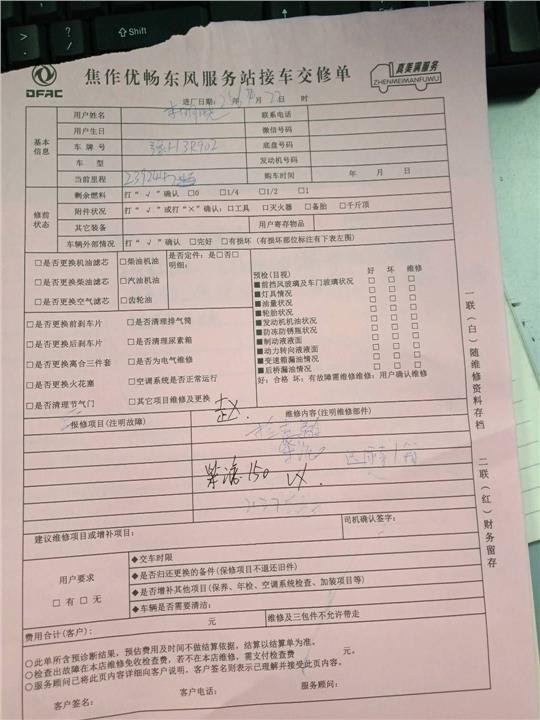 Shift
DFAC
焦作优畅东风服务站接车交修单
真美满服务
ZHENMEIMANFUWU
进厂日期: 年 月 22 日 时
基本信息
用户姓名
联系电话
用户生日
微信号码
车牌号 H3R902
底盘号码
车型
发动机号码
当前里程 239244
购车时间 年 月 日
修前状态
剩余燃料 打“√”确认 □0 □1/4 □1/2 □1
附件状况 打“√”或打“×”确认:□工具 □灭火器 □备胎 □千斤顶
其它装备
用户寄存物品
车辆外部情况 打“√”确认 □完好 □有损坏(有损坏部位标注有下表左图)
□是否更换机油滤芯
□是否更换柴油滤芯
□是否更换空气滤芯
□柴油机油
□汽油机油
□齿轮油
是否定件:是□否□
明细:
□是否更换前刹车片
□是否更换后刹车片
□是否更换离合三件套
□是否更换火花塞
□是否清理节气门
□是否清理排气筒
□是否清理尿素箱
□是否为电气维修
□空调系统是否正常运行
□其它项目维修及更换
预检(目视) 好 坏 维修
■前挡风玻璃及车门玻璃状况 □ □ □
■灯具情况 □ □ □
■油量状况 □ □ □
■轮胎状况 □ □ □
■发动机机油状况 □ □ □
■防冻防锈瓶状况 □ □ □
■制动液液面 □ □ □
■动力转向液液面 □ □ □
■变速箱漏油情况 □ □ □
■后桥漏油情况 □ □ □
好:合格 坏:有故障需维修维修:用户确认维修
报修项目(注明故障)
维修内容(注明维修部件)
柴滤150
建议维修项目或增补项目:
司机确认签字:
用户要求
□有□无
◆交车时限
◆是否归还更换的备件(保修项目不退还旧件)
◆是否增补其他项目(保养、年检、空调系统检查、加装项目等)
◆车辆是否需要清洁:
费用合计(客户): 元
维修及三包件不允许带走
○此单所含预诊断结果,预估费用及时间不做结算依据,结算以结算单为准。
○检查出故障在本店维修免收检查费,若不在本店维修,需支付检查费 元。
○服务顾问已将此页内容详细向客户说明,客户签名则表示已理解并接受此页内容。
客户签名: 客户电话: 服务顾问:
一联(白)随维修资料存档
二联(红)财务留存